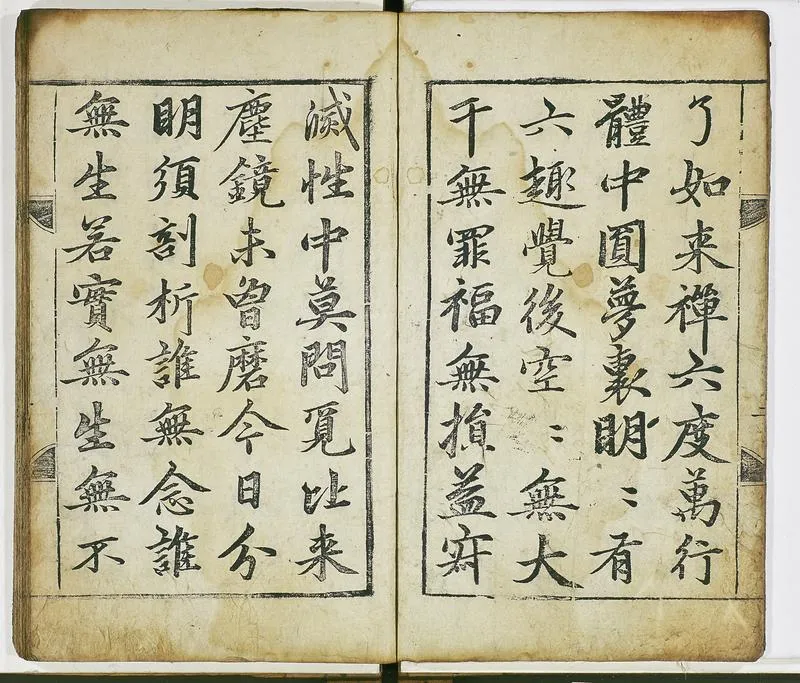 了如来禪六度萬行
體中圎夢裏明〻有
六趣覺後空〻無大
千無罪福無損益寂
滅性中莫問覓比来
塵鏡未曾磨今日分
明須剖析誰無念誰
無生若實無生無不